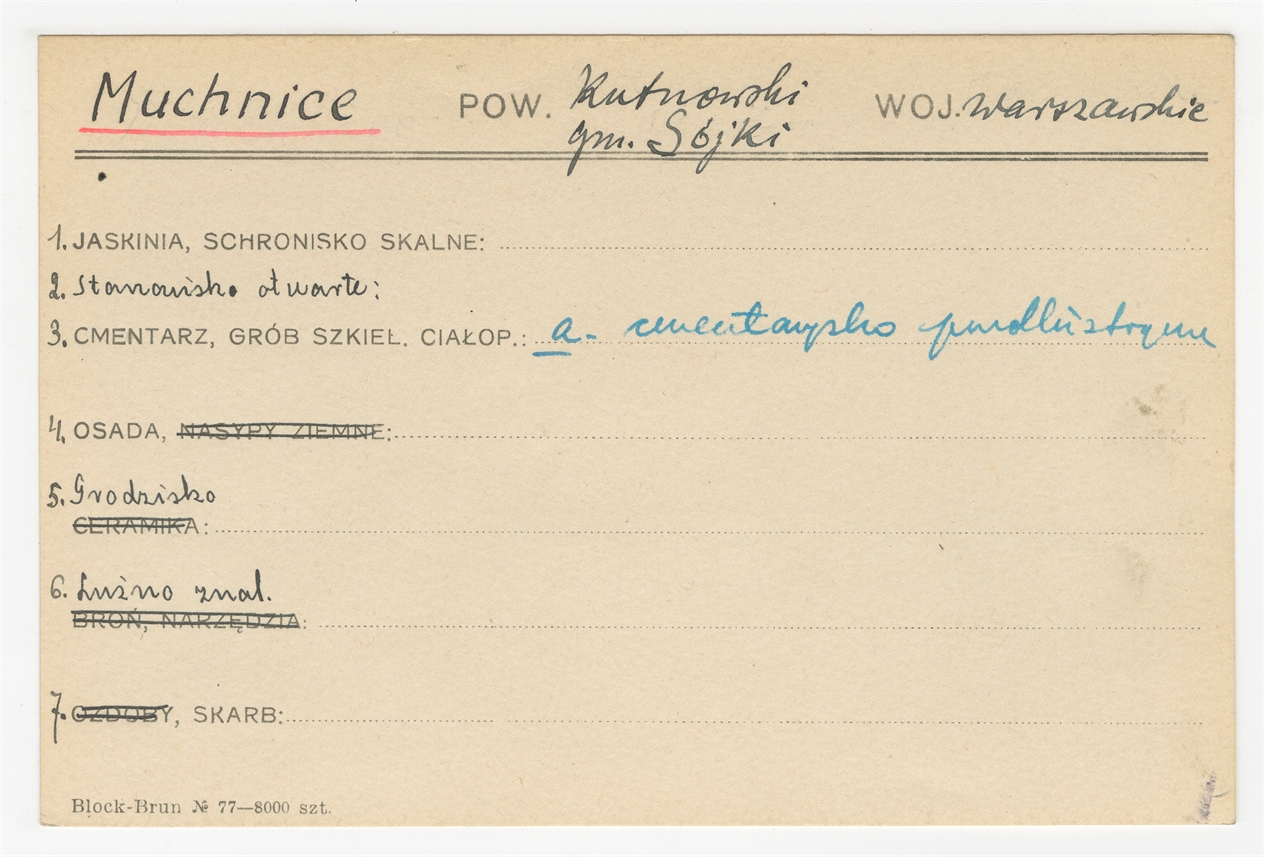 Muchnice POW. Kutnowski WOJ. Warszawskie
gm. Sójki
1. JASKINIA, SCHRONISKO SKALNE:
2. Stanowisko otwarte:
3. CMENTARZ, GRÓB SZKIEL. CIAŁOP.: a - cmentarzysko podkloszowe
4. OSADA, NASYPY ZIEMNE:
5. Grodzisko
CERAMIKA:
6. Luźno znal.
BROŃ, NARZĘDZIA:
7. OZDOBY, SKARB:
Block-Brun № 77—8000 szt.